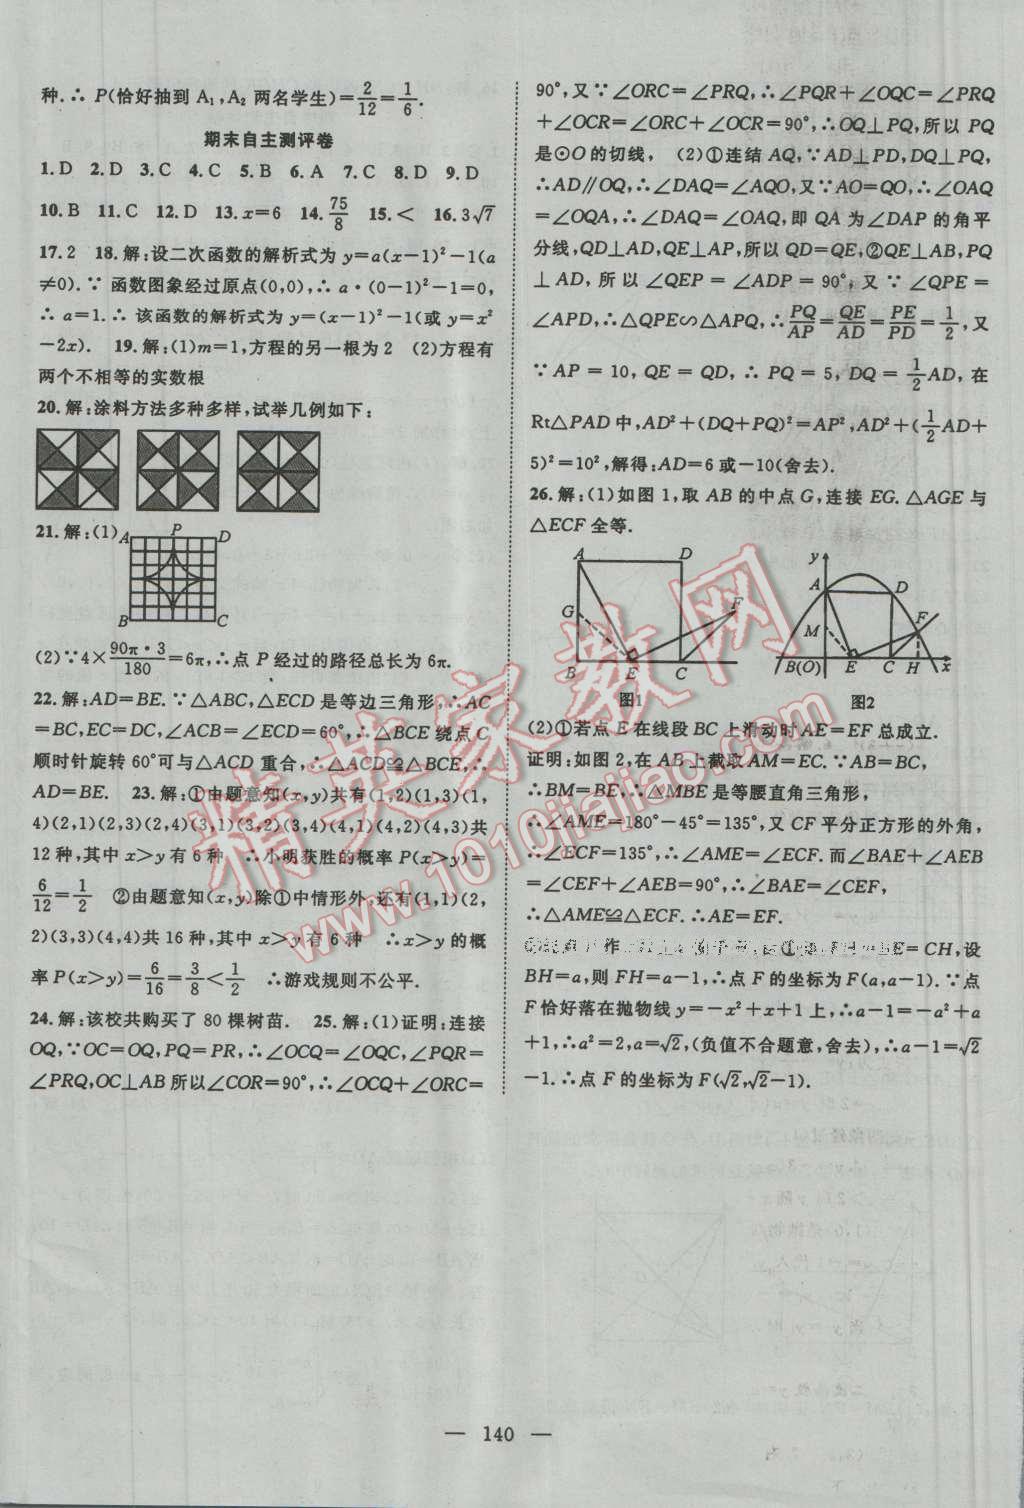 种.∴ P(恰好抽到 A₁,A₂ 两名学生)=2/12=1/6.
期末自主测评卷
1.D 2.D 3.C 4.C 5.B 6.A 7.C 8.D 9.D
10.B 11.C 12.D 13.x=6 14.75/8 15.< 16.3√7
17.2 18.解:设二次函数的解析式为 y=a(x-1)²-1(a
≠0).∵ 函数图象经过原点(0,0),∴ a·(0-1)²-1=0,
∴ a=1.∴ 该函数的解析式为 y=(x-1)²-1(或 y=x²
-2x). 19.解:(1)m=1,方程的另一根为 2 (2)方程有
两个不相等的实数根
20.解:涂料方法多种多样,试举几例如下:
21.解:(1)
A P D
B C
(2)∵4×90π·3/180=6π,∴点 P 经过的路径总长为 6π.
22.解:AD=BE.∵△ABC,△ECD 是等边三角形,∴AC
=BC,EC=DC,∠ACB=∠ECD=60°,∴△BCE 绕点 C
顺时针旋转 60°可与△ACD 重合,∴△ACD≌△BCE,∴
AD=BE. 23.解:①由题意知(x,y)共有(1,2)(1,3)(1,
4)(2,1)(2,3)(2,4)(3,1)(3,2)(3,4)(4,1)(4,2)(4,3)共
12 种,其中 x>y 有 6 种 ∴小明获胜的概率 P(x>y)=
6/12=1/2 ②由题意知(x,y)除①中情形外,还有(1,1)(2,
2)(3,3)(4,4)共 16 种,其中 x>y 有 6 种 ∴x>y 的概
率 P(x>y)=6/16=3/8<1/2 ∴游戏规则不公平.
24.解:该校共购买了 80 棵树苗. 25.解:(1)证明:连接
OQ,∵OC=OQ,PQ=PR,∴∠OCQ=∠OQC,∠PQR=
∠PRQ,OC⊥AB 所以∠COR=90°,∴∠OCQ+∠ORC=
90°,又∵∠ORC=∠PRQ,∴∠PQR+∠OQC=∠PRQ
+∠OCR=∠ORC+∠OCR=90°,∴OQ⊥PQ,所以 PQ
是⊙O 的切线, (2)①连结 AQ,∵AD⊥PD,DQ⊥PQ,
∴AD∥OQ,∴∠DAQ=∠AQO,又∵AO=QO,∴∠OAQ
=∠OQA,∴∠DAQ=∠OAQ,即 QA 为∠DAP 的角平
分线,QD⊥AD,QE⊥AP,所以 QD=QE,②QE⊥AB,PQ
⊥AD,所以∠QEP=∠ADP=90°,又∵∠QPE=
∠APD,∴△QPE∽△APQ,∴PQ/AP=QE/AD=PE/PD=1/2,又
∵AP=10,QE=QD,∴PQ=5,DQ=1/2AD,在
Rt△PAD 中,AD²+(DQ+PQ)²=AP²,AD²+(1/2AD+
5)²=10²,解得:AD=6 或-10(舍去).
26.解:(1)如图 1,取 AB 的中点 G,连接 EG.△AGE 与
△ECF 全等.
A D
G F
B E C
图1
y
A D
M F
B(O) E C H x
图2
(2)①若点 E 在线段 BC 上滑动时 AE=EF 总成立.
证明:如图 2,在 AB 上截取 AM=EC.∵AB=BC,
∴BM=BE,∴△MBE 是等腰直角三角形,
∴∠AME=180°-45°=135°,又 CF 平分正方形的外角,
∴∠ECF=135°,∴∠AME=∠ECF.而∠BAE+∠AEB
=∠CEF+∠AEB=90°,∴∠BAE=∠CEF,
∴△AME≌△ECF.∴AE=EF.
=CH,设
BH=a,则 FH=a-1,∴点 F 的坐标为 F(a,a-1).∵点
F 恰好落在抛物线 y=-x²+x+1 上,∴a-1=-a²+a
+1,∴a²=2,a=√2,(负值不合题意,舍去),∴a-1=√2
-1.∴点 F 的坐标为 F(√2,√2-1).
精英家教网
www.1010jiajiao.com
— 140 —